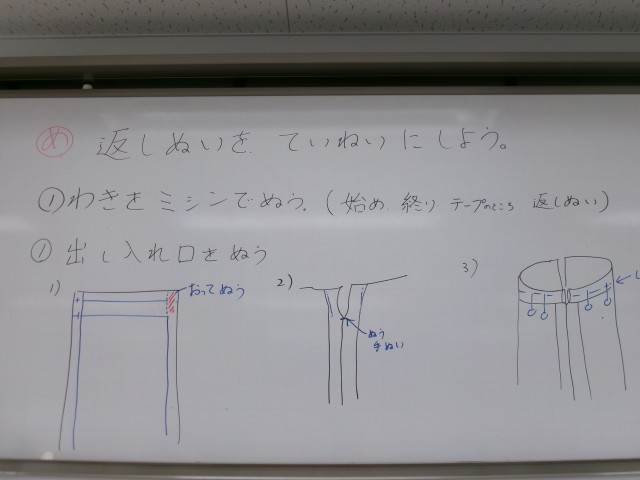 め 返しぬいを ていねいにしよう。
①わきをミシンでぬう。(始め、終り テープのところ 返しぬい)
① 出し入れ口をぬう
1) おってぬう
2)
ぬう
手ぬい
3)